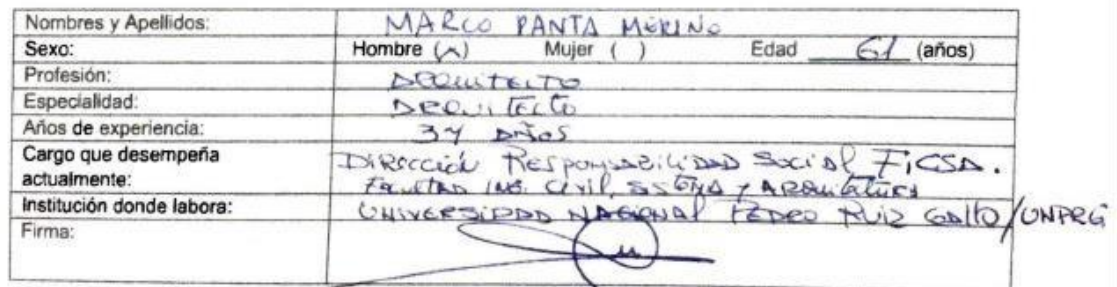 Nombres y Apellidos: MARCO PANTA MERINO
Sexo: Hombre (x) Mujer ( ) Edad 61 (años)
Profesión: ARQUITECTO
Especialidad: ARQUITECTO
Años de experiencia: 34 AÑOS
Cargo que desempeña actualmente: DIRECCIÓN RESPONSABILIDAD SOCIAL FICSA.
FACULTAD ING. CIVIL, SISTEMA Y ARQUITECTURA
Institución donde labora: UNIVERSIDAD NACIONAL PEDRO RUIZ GALLO/UNPRG
Firma: